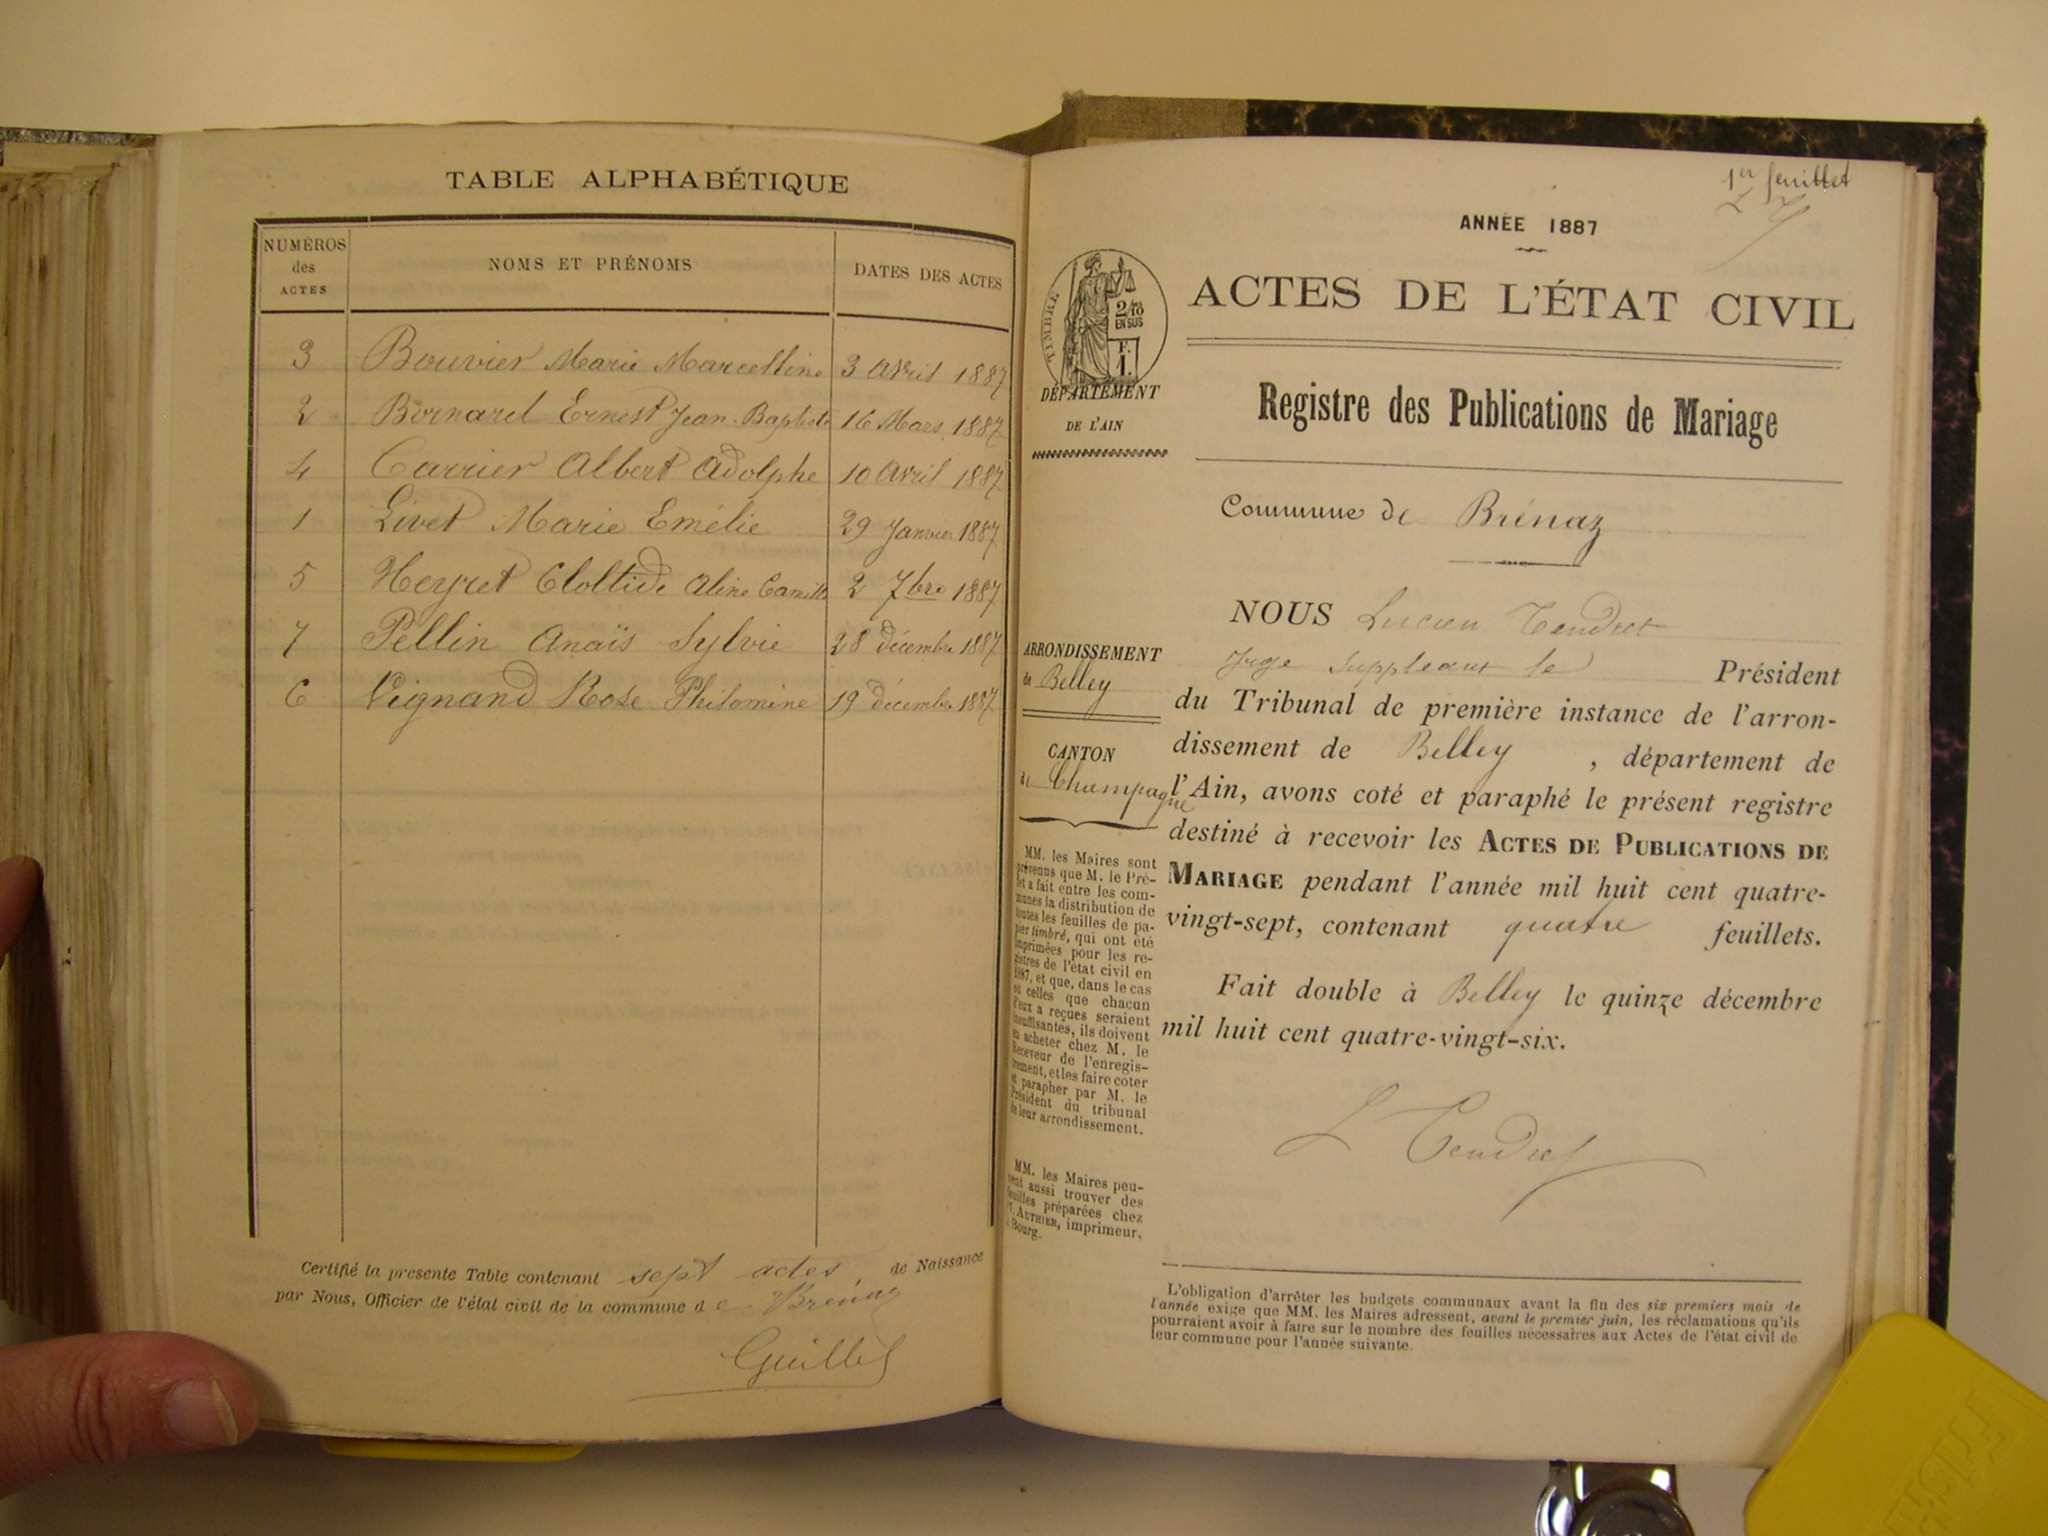 TABLE ALPHABÉTIQUE
NUMÉROS des ACTES
NOMS ET PRÉNOMS
DATES DES ACTES
3 Bouvier Marie Marcelline 3 Avril 1887
2 Bornarel Ernest Jean-Baptiste 16 Mars 1887
4 Carrier Albert Adolphe 10 Avril 1887
1 Livet Marie Emélie 29 Janvier 1887
5 Heyret Cloltide Aline Camille 2 7bre 1887
7 Pellin Anaïs Sylvie 28 décembre 1887
6 Vignand Rose Philomine 19 décembre 1887
Certifié la présente Table contenant sept actes, de Naissance
par Nous, Officier de l'état civil de la commune de Brénaz
Guillet
1er feuillet
ANNÉE 1887
ACTES DE L'ÉTAT CIVIL
TIMBRE
2/10
EN SUS
F.
1.
DÉPARTEMENT
DE L'AIN
Registre des Publications de Mariage
Commune de Brénaz
NOUS Lucien Tendret
Juge Suppléant le Président
du Tribunal de première instance de l'arron-
dissement de Belley, département de
l'Ain, avons coté et paraphé le présent registre
destiné à recevoir les ACTES DE PUBLICATIONS DE
MARIAGE pendant l'année mil huit cent quatre-
vingt-sept, contenant quatre feuillets.
Fait double à Belley le quinze décembre
mil huit cent quatre-vingt-six.
L Tendret
ARRONDISSEMENT
de Belley
CANTON
de Champagne
MM. les Maires sont
prévenus que M. le Pré-
fet a fait entre les com-
munes la distribution de
toutes les feuilles de pa-
pier timbré, qui ont été
imprimées pour les re-
gistres de l'état civil en
1887, et que, dans le cas
où celles que chacun
d'eux a reçues seraient
insuffisantes, ils doivent
en acheter chez M. le
Receveur de l'enregis-
trement, et les faire coter
et parapher par M. le
Président du tribunal
de leur arrondissement.
MM. les Maires peu-
vent aussi trouver des
feuilles préparées chez
AUTHIER, imprimeur,
à Bourg.
L'obligation d'arrêter les budgets communaux avant la fin des six premiers mois de
l'année exige que MM. les Maires adressent, avant le premier juin, les réclamations qu'ils
pourraient avoir à faire sur le nombre des feuilles nécessaires aux Actes de l'état civil de
leur commune pour l'année suivante.